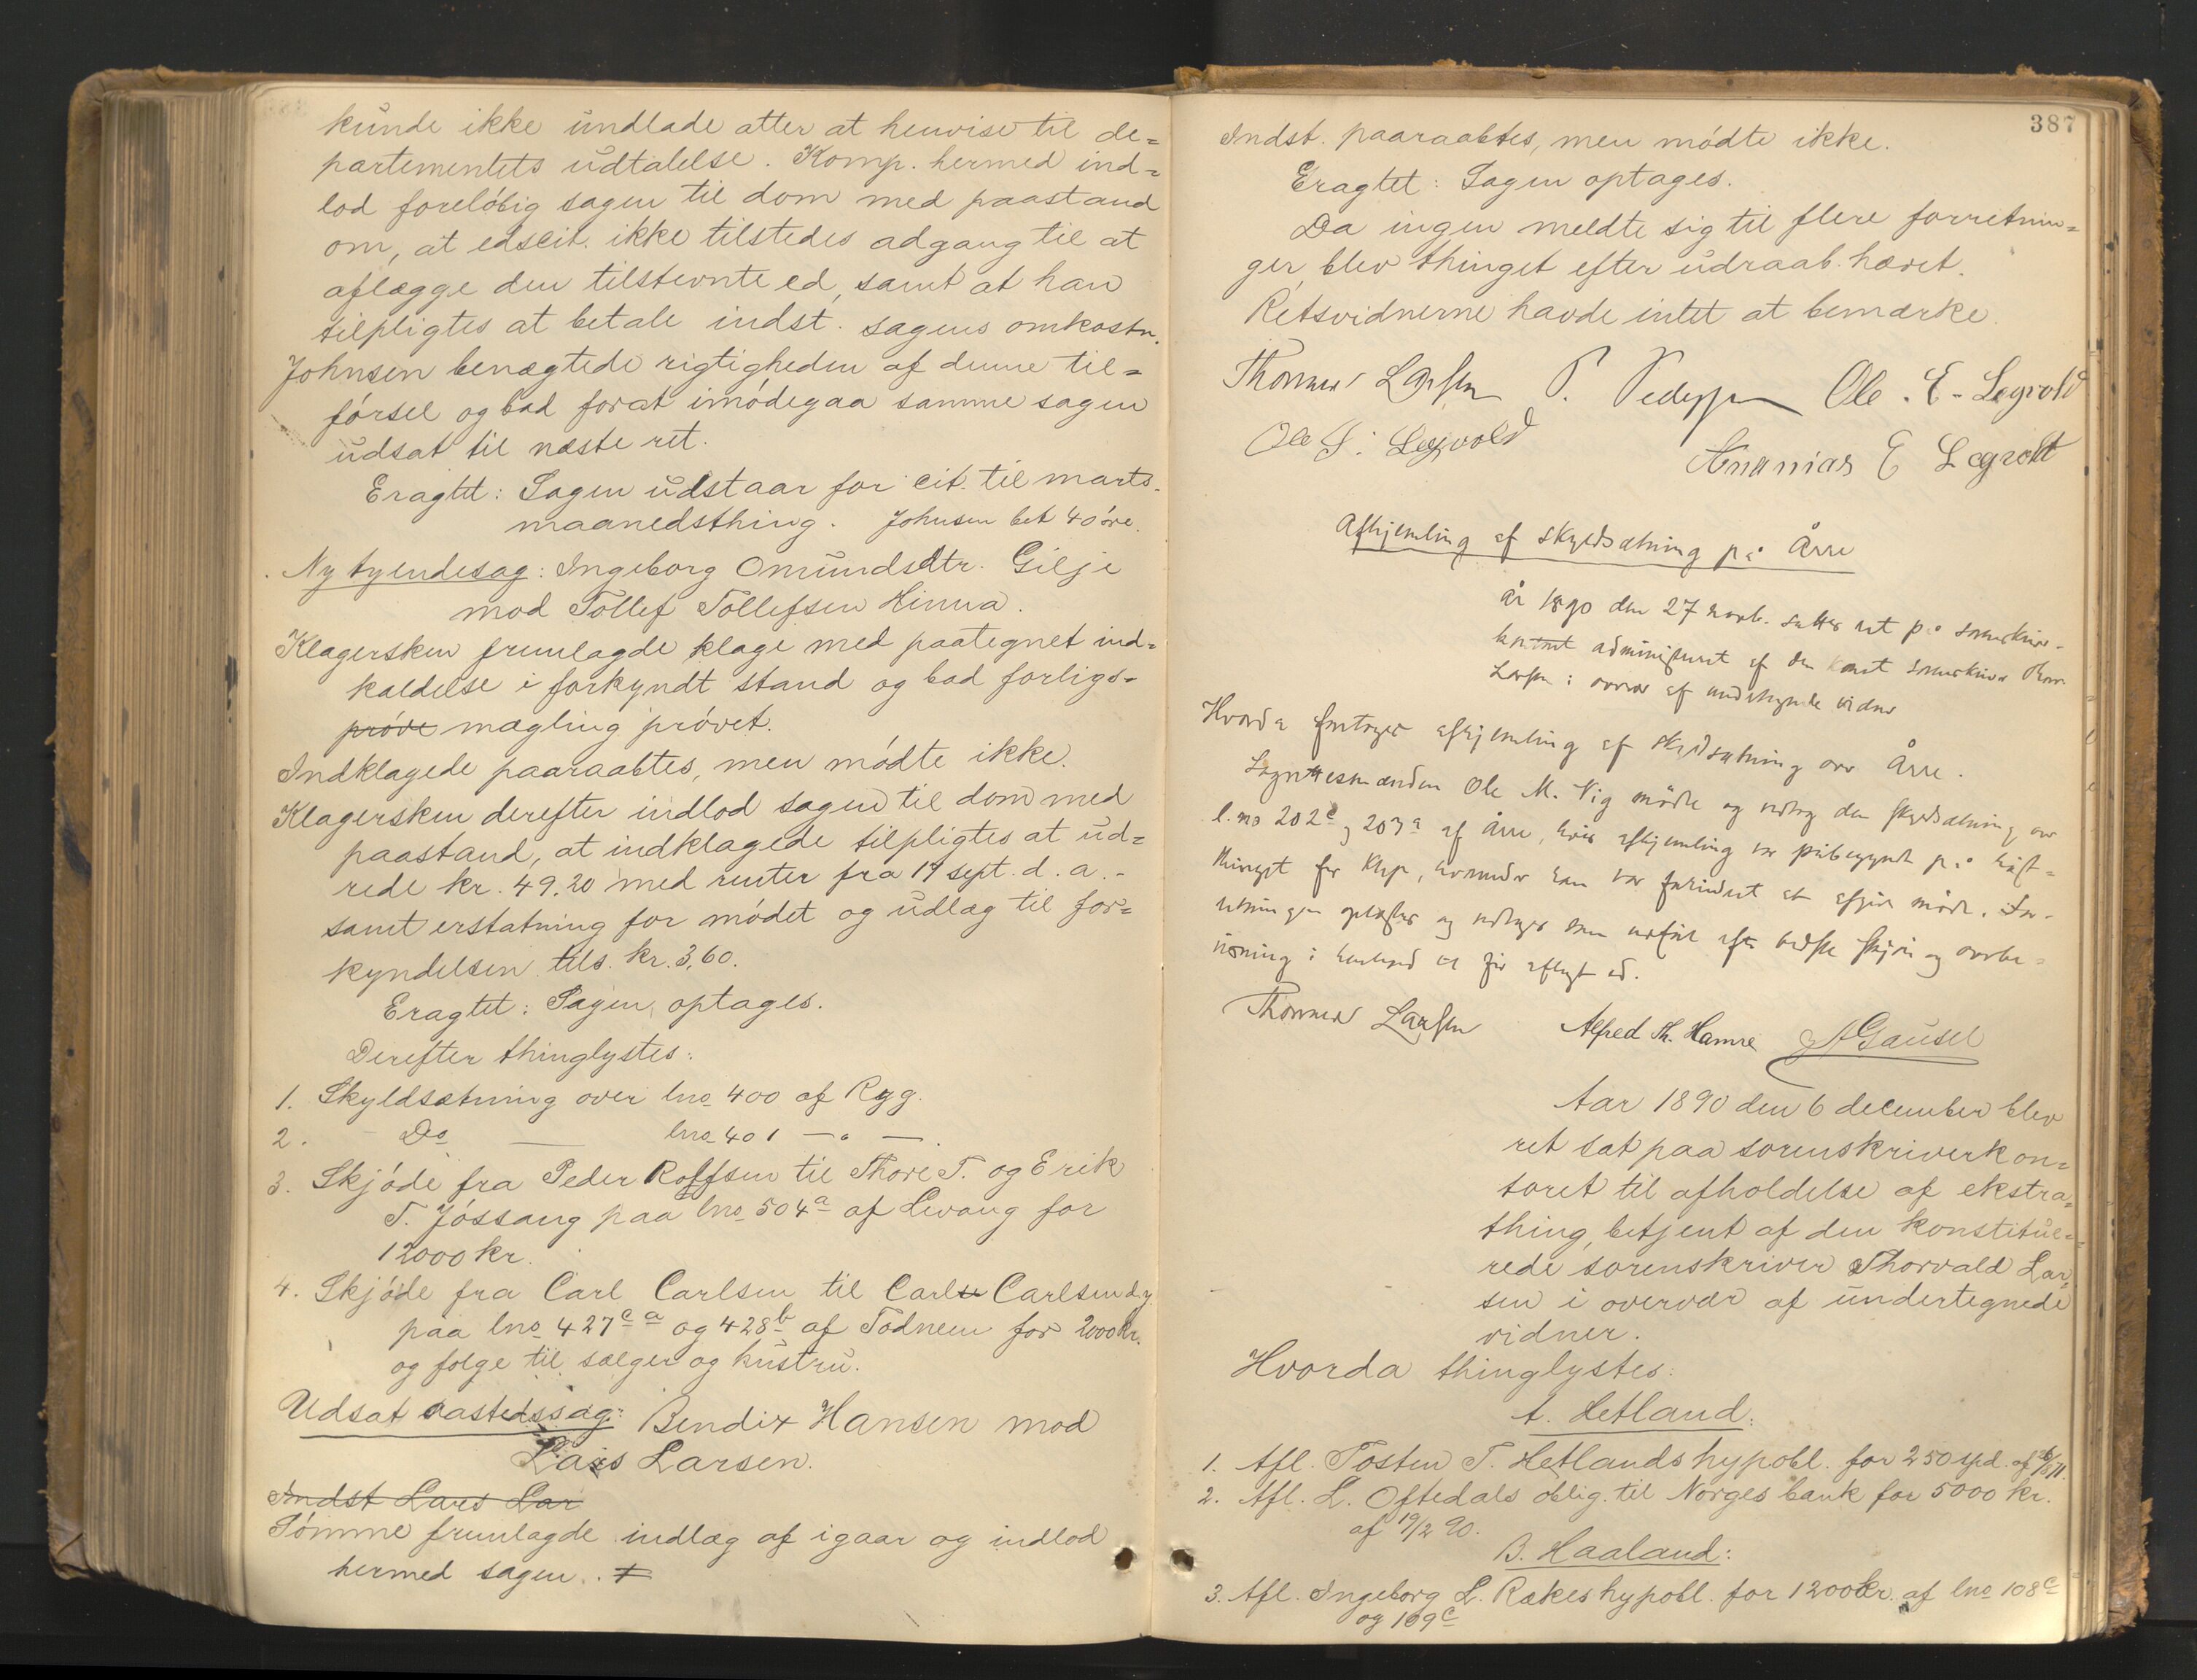 kunde ikke undlade atter at henvise til de=
partementets udtalelse. Komp. hermed ind=
lod foreløbig sagen til dom med paastand
om, at edscit. ikke tilstedes adgang til at
aflægge den tilstevnte ed, samt at han
tilpligtes at betale indst. sagens omkostn.
Johnsen benægtede rigtigheden af denne til=
førsel og bad forat imødegaa samme sagen
udsat til næste ret.
Eragtet: Sagen udstaar for cit. til marts
maanedsthing. Johnsen bet 40 øre.
Ny tyendesag: Ingeborg Omundsdtr. Gilje
mod Tollef Tollefsen Hinna.
Klagersken fremlagde klage med paategnet ind=
kaldelse i forkyndt stand og bad forligs=
prøve mægling prøvet.
Indklagede paaraabtes, men mødte ikke.
Klagersken derefter indlod sagen til dom med
paastand, at indklagede tilpligtes at ud=
rede kr. 49.20 med renter fra 19 sept. d. a. -
samt erstatning for mødet og udlæg til for=
kyndelsen tils. kr. 3,60.
Eragtet: Sagen optages.
Derefter thinglystes:
1. Skyldsætning over lno 400 af Rygg.
2. Do — lno 401 — " —.
3. Skjøde fra Peder Roffsen til Thore T. og Erik
T. Jøssang paa lno 504a af for
12000 kr.
4. Skjøde fra Carl Carlsen til Carlse Carlsen d.y.
paa lno 427c a og 428b af Todnem for 2000 kr.
og følge til sælger og hustru.
Udsat aastedssag: Bendix Hansen mod
Lars Larsen.
Indst Lars Lar
Tømme fremlagde indlæg af igaar og indlod
hermed sagen. ╪
387
Indst. paaraabtes, men mødte ikke.
Eragtet: Sagen optages.
Da ingen meldte sig til flere forretnin=
ger, blev thinget efter udraab hævet.
Retsvidnerne havde intet at bemærke.
Larsen P. Pedersen Ole. E. Legvold
Ole S. Legvold
Ananias E Legvold
Afhjemling af skyldsætning på Årre
År 1890 den 27 novb. sattes ret på sorenskriver-
kontoret administreret af den konst sorenskriver Thorv.
Larsen i overvær af undertegnede vidner
Hvorda foretoges afhjemling af skyldsætning over Årre.
Lagrettesmanden Ole M. Vig mødte og vedtog den skyldsætning over
l. no 202c og 203a af Årre, hvis afhjemling var påbegyndt på høst-
thinget for Klep, hvorunder han var forhindret at afgive møde. For-
retningen oplæstes og vedtoges som udført efter bedste skjøn og overbe-
visning i henhold til før aflagt ed.
Larsen Alfred Th. Hamre Gausel
Aar 1890 den 6 december blev
ret sat paa sorenskriverkon=
toret til afholdelse af ekstra=
thing, betjent af den konstitue=
rede sorenskriver Thorvald Lar=
sen i overvær af undertegnede
vidner.
Hvorda thinglystes:
A. Hetland:
1. Afl. Tosten T. Hetlands hypobl. for 250 spd. af
2. Afl. L. Oftedals oblig. til Norges bank for 5000 kr.
af 19/2 90.
B. Haaland:
3. Afl. Ingeborg L. Rækes hypobl. for 1200 kr. af lno 108c
og 109c